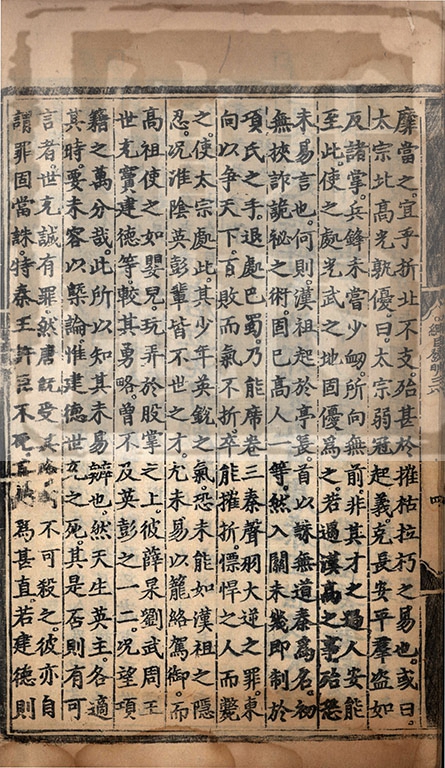 靡當之。宜乎折北不支。殆甚於摧枯拉朽之易也。或曰。
太宗比高光孰優。曰。太宗弱冠起義。克長安平羣盗如
反諸掌。兵鋒未嘗少衂。所向無前。非其才之過人安能
至此。使之處光武之地。固優爲之。若過漢高之事殆恐
未易言也。何則。漢祖起於亭長。首以誅無道秦爲名。初
無挾詐詭秘之術。固已高人一等。然入關未幾。即制於
項氏之手。退處巴蜀。乃能席卷三秦。聲羽大逆之罪。東
向以爭天下。百敗而氣不折。卒能摧折慓悍之人而斃
之。使太宗處此。其少年英銳之氣。恐未能如漢祖之隱
忍。况淮陰英彭輩皆不世之才。尤未易以籠絡駕御。而
高祖使之如嬰兒。玩弄於股掌之上。彼薛杲劉武周王
世充竇建德等。較其勇略。曾不及英彭之一二。况望項
籍之萬分哉。此所以知其未易辨也。然天生英主。各適
其時。要未容以槩論。惟建德世充之死。其是否則有可
言者。世充誠有罪。然唐既受其 不可殺之。彼亦自
謂罪固當誅。特秦王許臣不死 爲甚直。若建德則
四